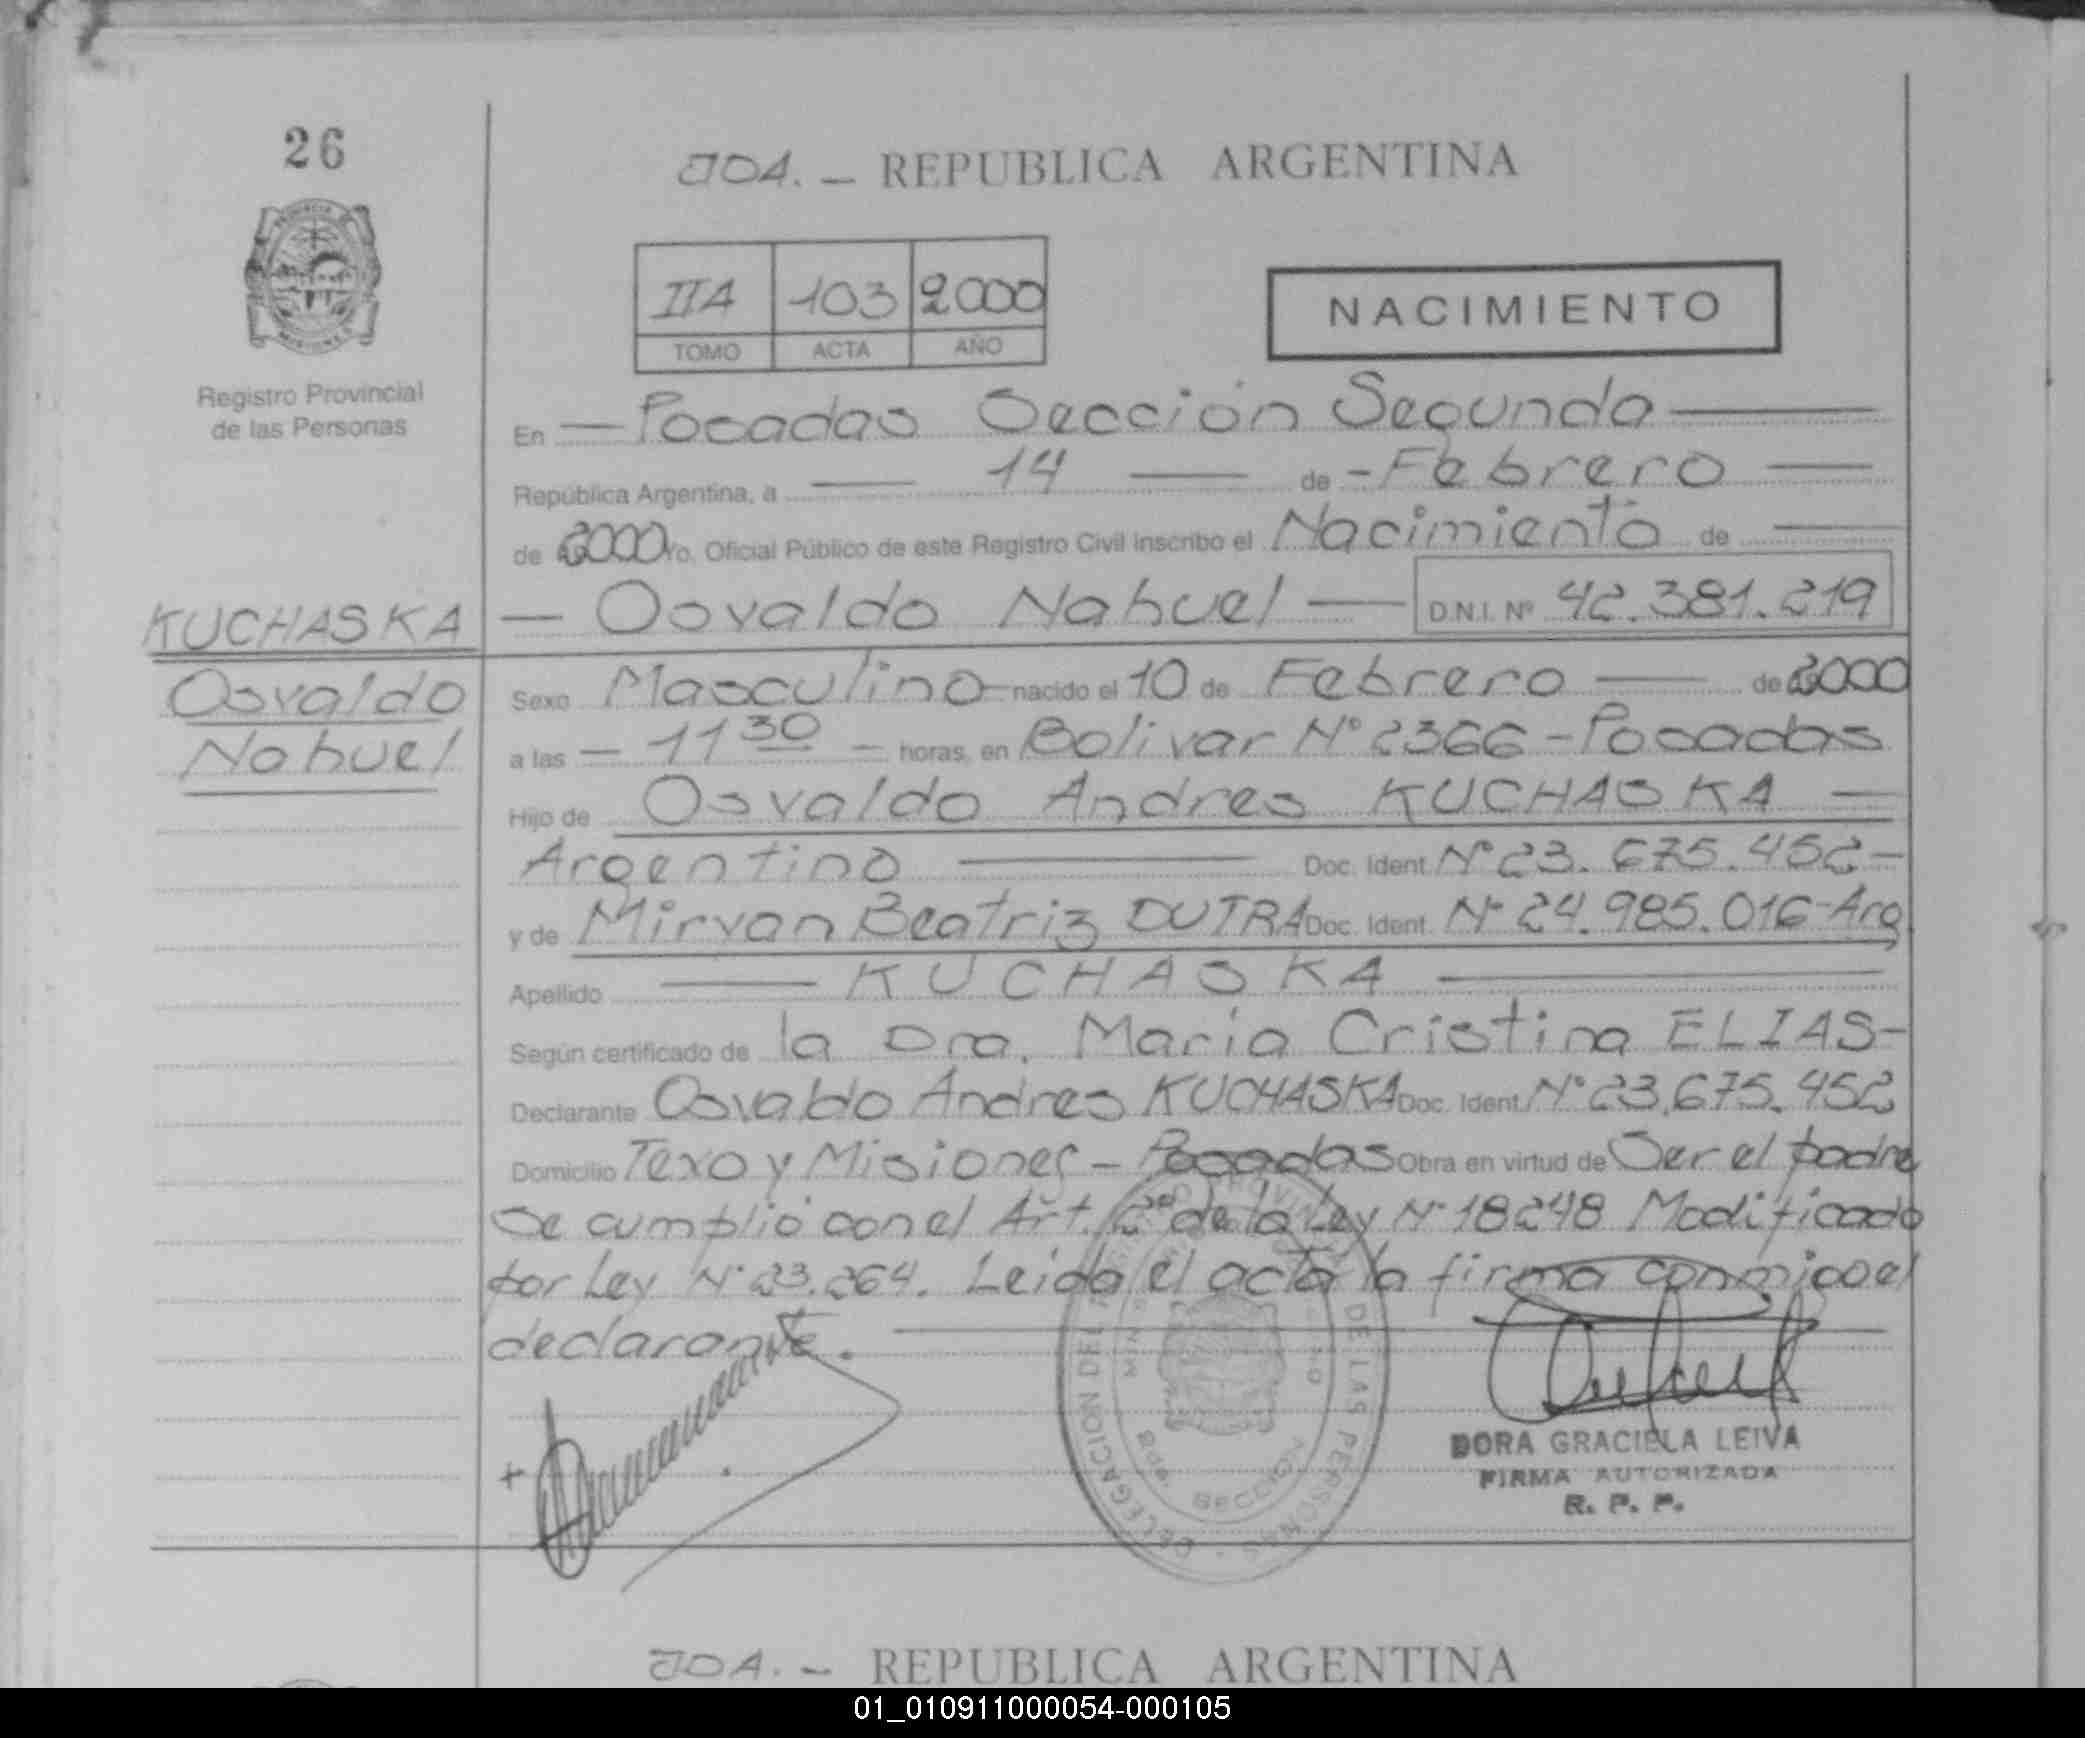 26
JOA. - REPUBLICA ARGENTINA
IIA 103 2000
TOMO ACTA AÑO
NACIMIENTO
Registro Provincial
de las Personas
En — Posadas Sección Segunda —
República Argentina, a — 14 — de - Febrero —
de 2000 Yo, Oficial Público de este Registro Civil Inscribo el Nacimiento de —
KUCHASKA — Osvaldo Nahuel — D.N.I. Nº 42.381.219
Osvaldo
Nahuel
Sexo Masculino - nacido el 10 de Febrero — de 2000
a las — 11 30 — horas, en Bolivar Nº 2366 - Posadas
Hijo de Osvaldo Andres KUCHASKA —
Argentino — Doc. Ident. Nº 23.675.452 -
y de Mirvan Beatriz DUTRA Doc. Ident. Nº 24.985.016 - Arg
Apellido — KUCHASKA —
Según certificado de la Dra. Maria Cristina ELIAS -
Declarante Osvaldo Andres KUCHASKA Doc. Ident. Nº 23.675.452
Domicilio Texo y Misiones - Posadas Obra en virtud de Ser el padre
Se cumplió con el Art. 2º de la Ley Nº 18248 Modificado
por Ley Nº 23.264. Leida el acta la firma conmigo el
declarante. —
DELEGACION DEL DE LAS PERSONAS
2da. SECCION
DORA GRACIELA LEIVA
FIRMA AUTORIZADA
R. P. P.
JOA. - REPUBLICA ARGENTINA
01_010911000054-000105